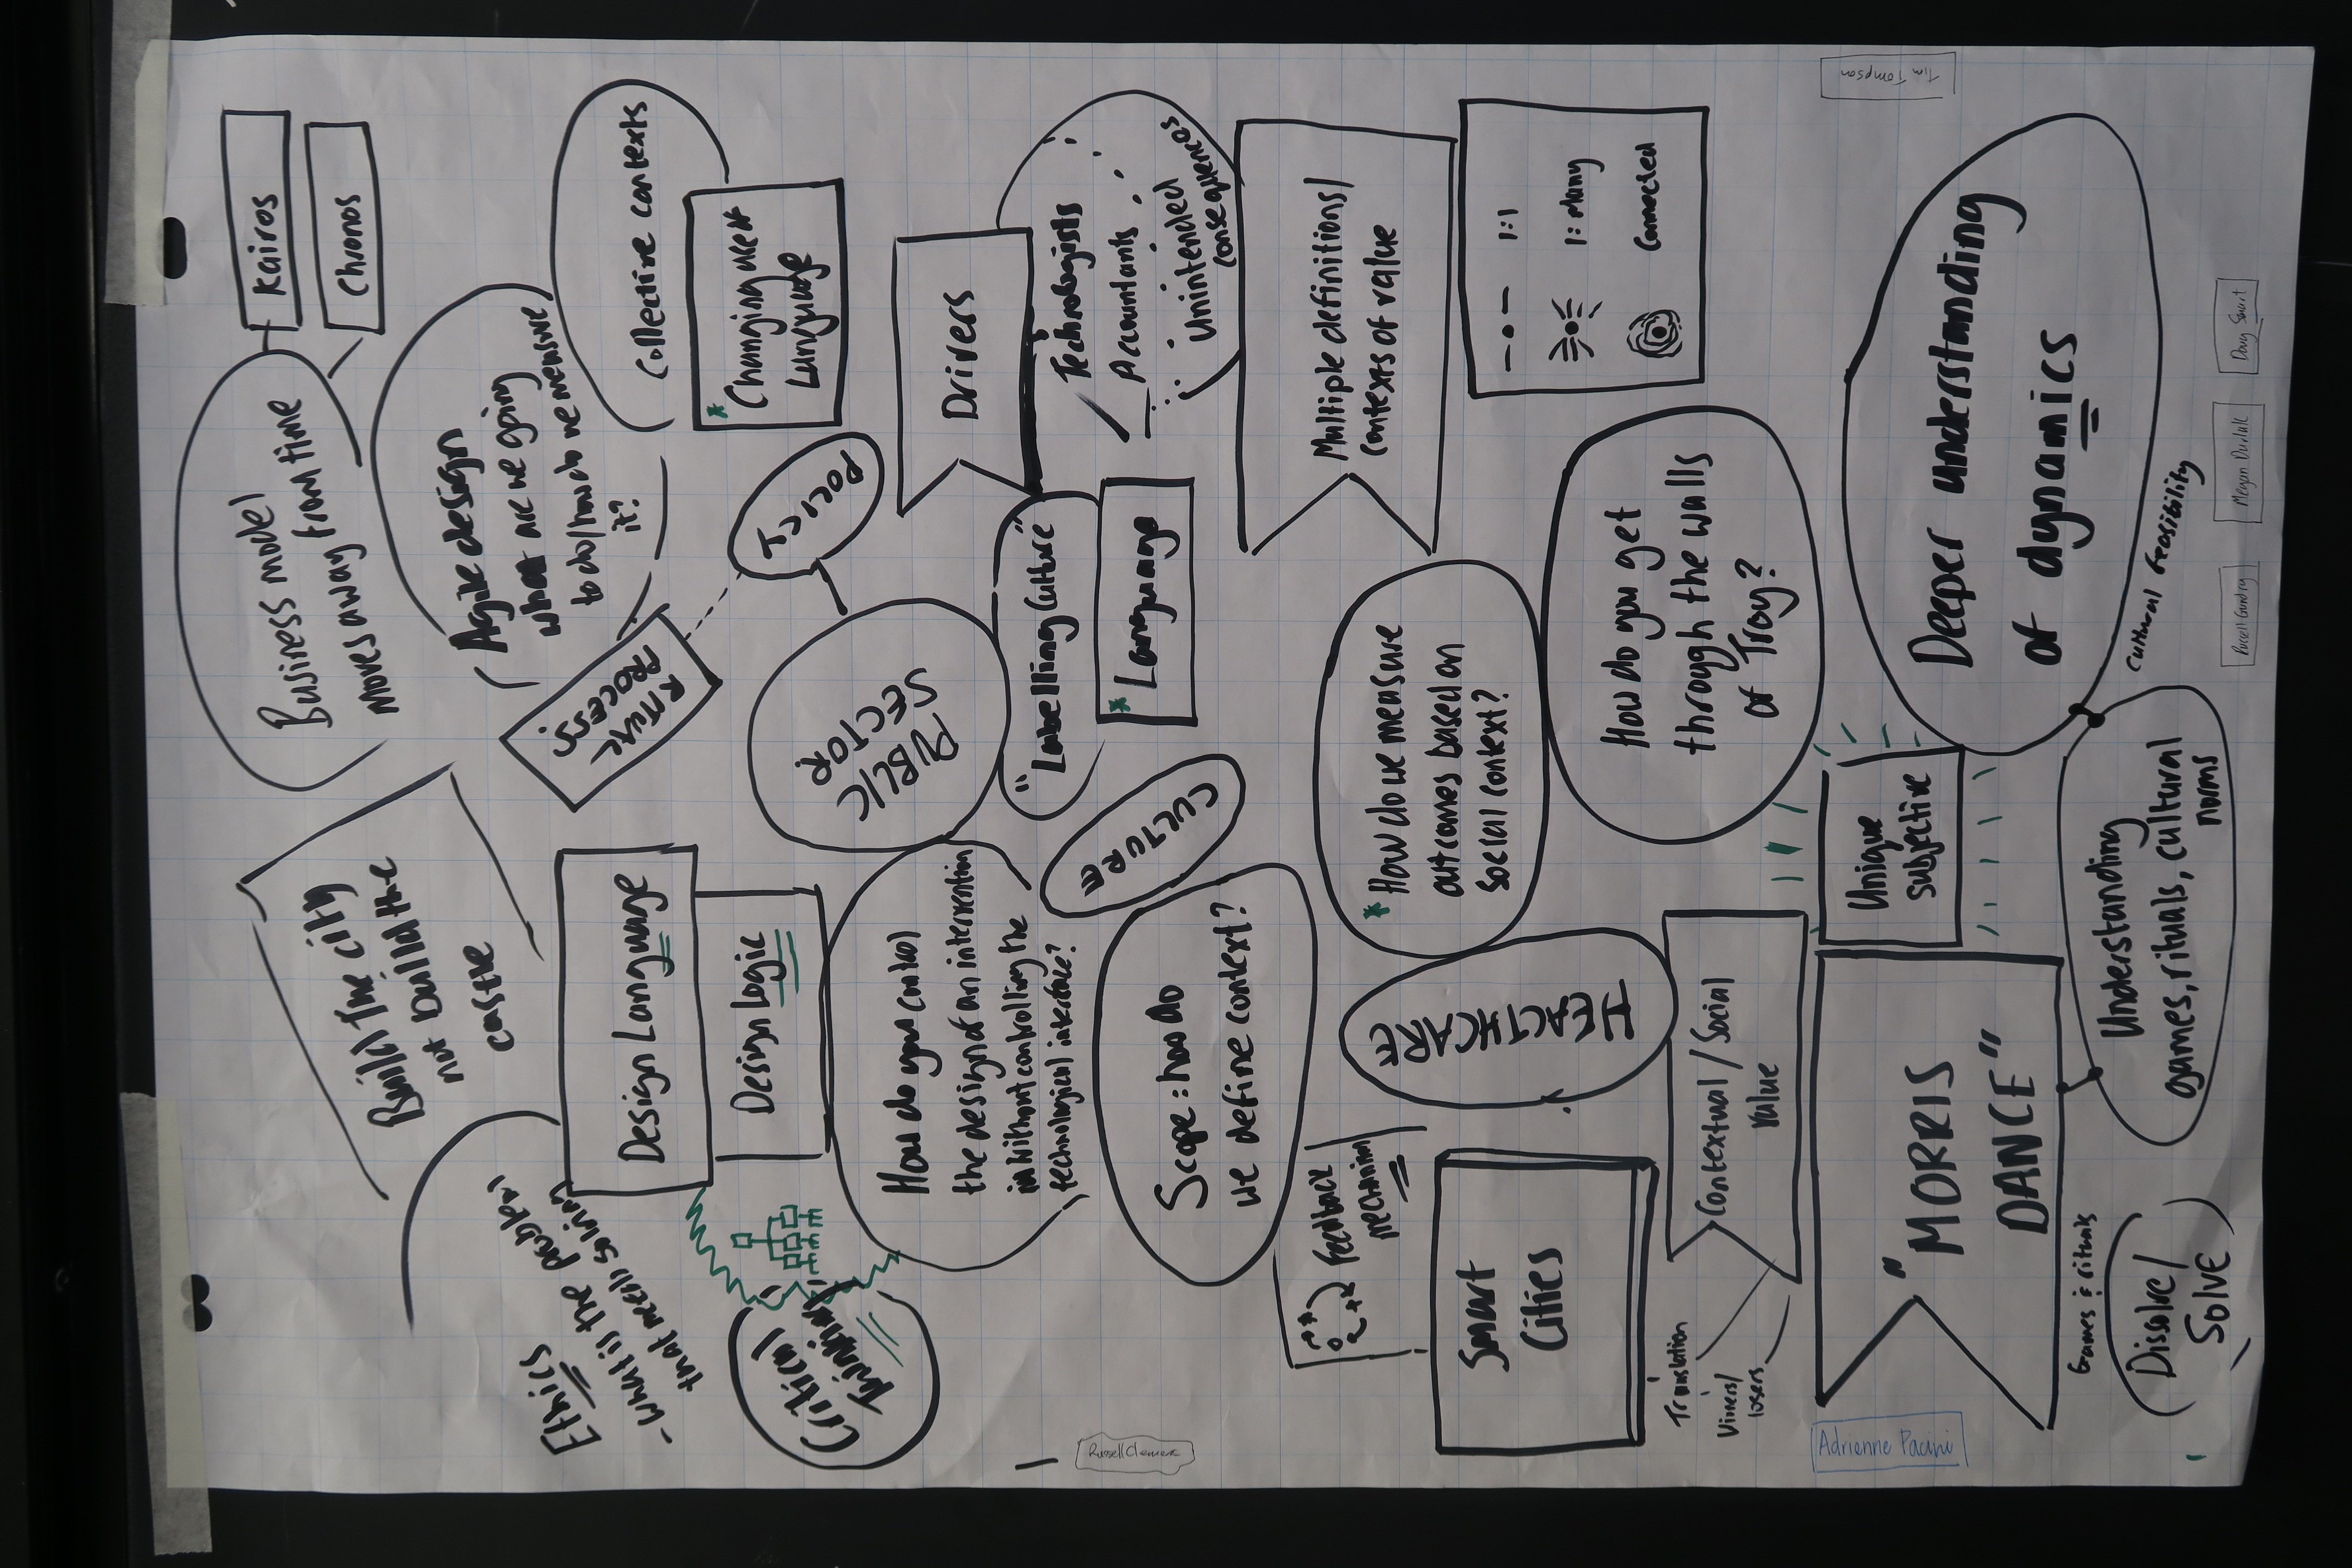 Business model
moves away from time
Kairos
Chronos
Build The city
not build the
castle
Agile design
what are we going
to do/how do we measure
it?
Ethics
- What is the problem
that needs solving
RITUAL
PROCESS?
Collective contexts
* Changing user
Language
Design Language
Design Logic
Critical
Thinking
POLICY
PUBLIC
SECTOR
Drivers
How do you control
the design of an intervention
without controlling the
technological interface?
"Labelling Culture"
* Language
Technologists
Accountants
Unintended
consequences
CULTURE
Scope: how do
we define context?
Multiple definitions/
Contexts of value
Feedback
mechanism
* How do we measure
outcomes based on
social context?
HEALTHCARE
Smart
Cities
1:1
1:Many
Connected
How do you get
through the walls
of Troy?
Contextual/Social
value
Translation
Winners/
losers
Unique
subjective
Deeper understanding
of dynamics
"MORRIS
DANCE"
Games & rituals
Cultural feasibility
Understanding
games, rituals, cultural
norms
Dissolve/
Solve
Russell Clemens
Adrienne Pacini
Tim Tompson
Russell Gundry
Doug Smart